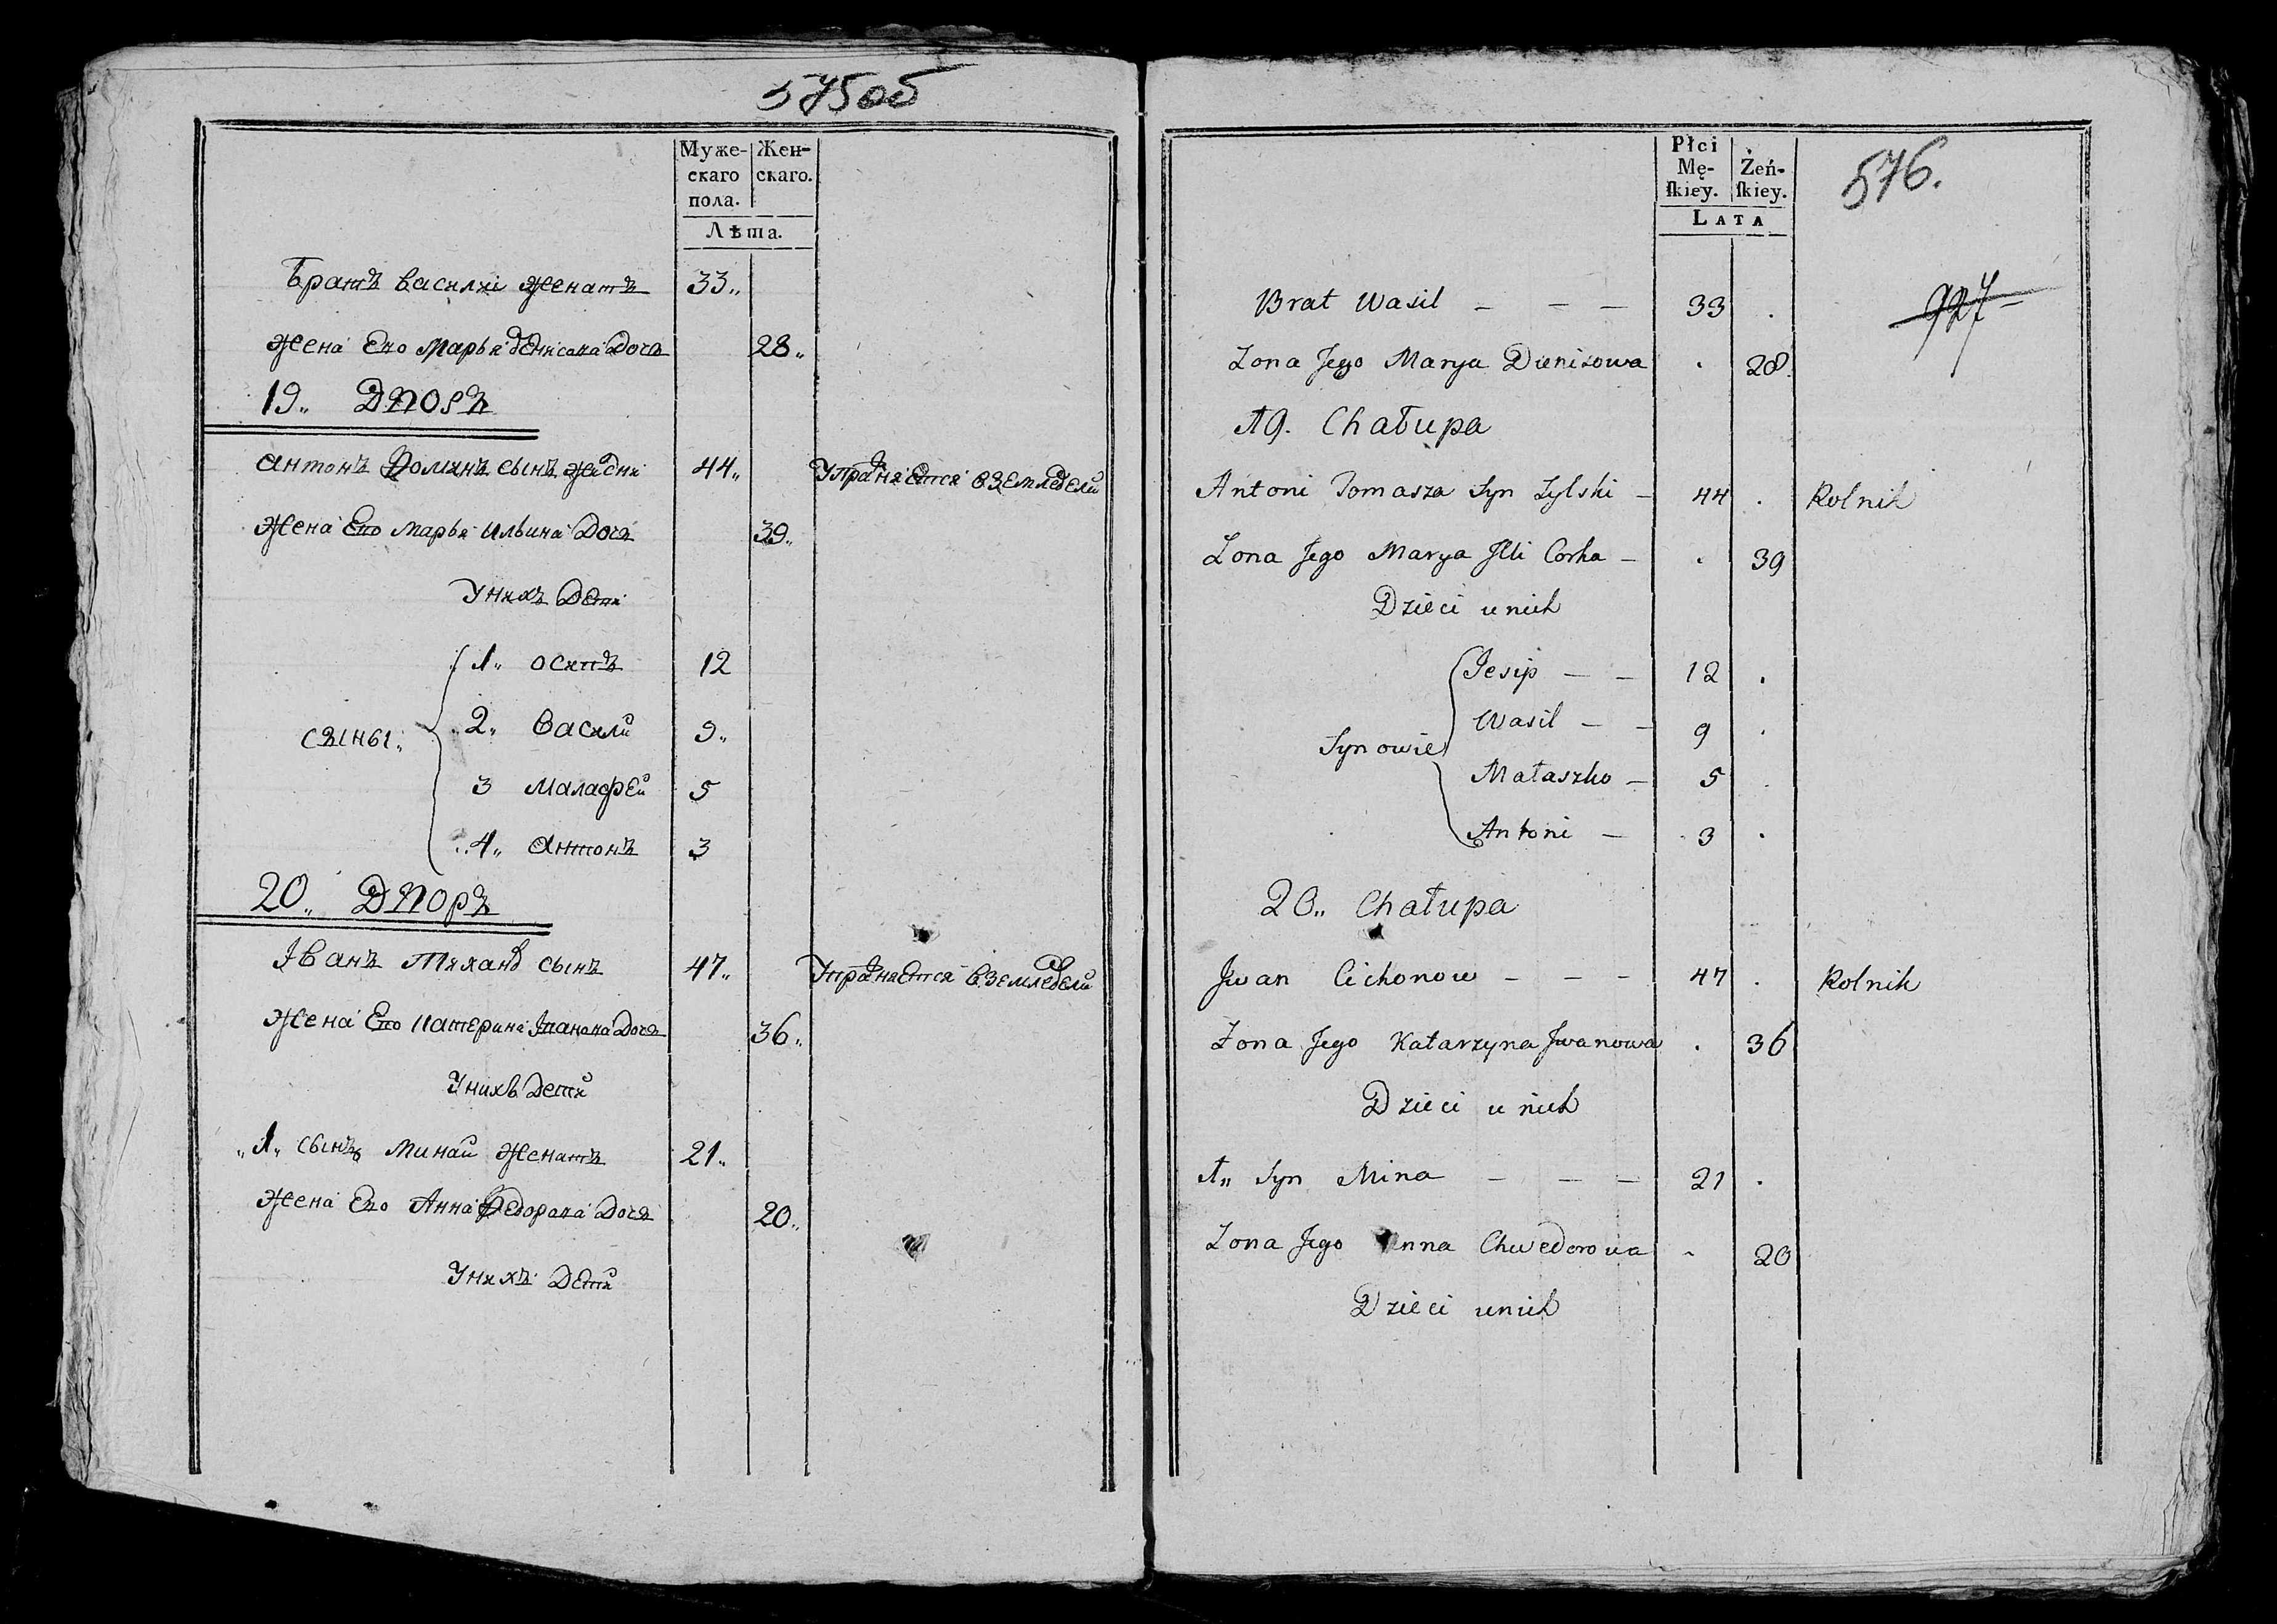 575об
Муже-
скаго
пола.
Жен-
скаго.
Лѣта.
Братъ Василий женатъ 33„
Жена Его Марья Денисова Дочь 28„
19„ Дворъ
Антонъ Фоминъ сынъ 44„ Упражняется в земледелии
Жена Его Марья Ильина Дочь 39„
У нихъ Дети
1„ Осипъ 12
сыны„ 2„ Василий 9„
3 Малафей 5
4„ Антонъ 3
20„ Дворъ
Іванъ Тиханов сынъ 47„ Упражняется в земледелии
Жена Его Катерина Іванова Дочь 36„
У нихъ Дети
„1„ сынъ Минай женатъ 21„
Жена Его Анна Федорова Дочь 20„
У нихъ Дети
Płci
Mę-
ſkiey.
Żeń-
ſkiey.
Lata
576.
927
Brat Wasil – – – 33 .
Zona Jego Marya Dienisowa . 28.
19. Chałupa
Antoni Tomasza Syn Zylski – 44 . Rolnik
Zona Jego Marya Jlli Corka – . 39
Dzieci u nich
Jesip – – 12 .
Wasil – – 9 .
Synowie
Małaszko – 5 .
Antoni – 3 .
20„ Chałupa
Jwan Cichonow – – – 47 . Rolnik
Zona Jego Katarzyna Jwanowa . 36
Dzieci u nich
1„ Syn Mina – – – 21 .
Zona Jego Anna Chwedorowa . 20
Dzieci u nich